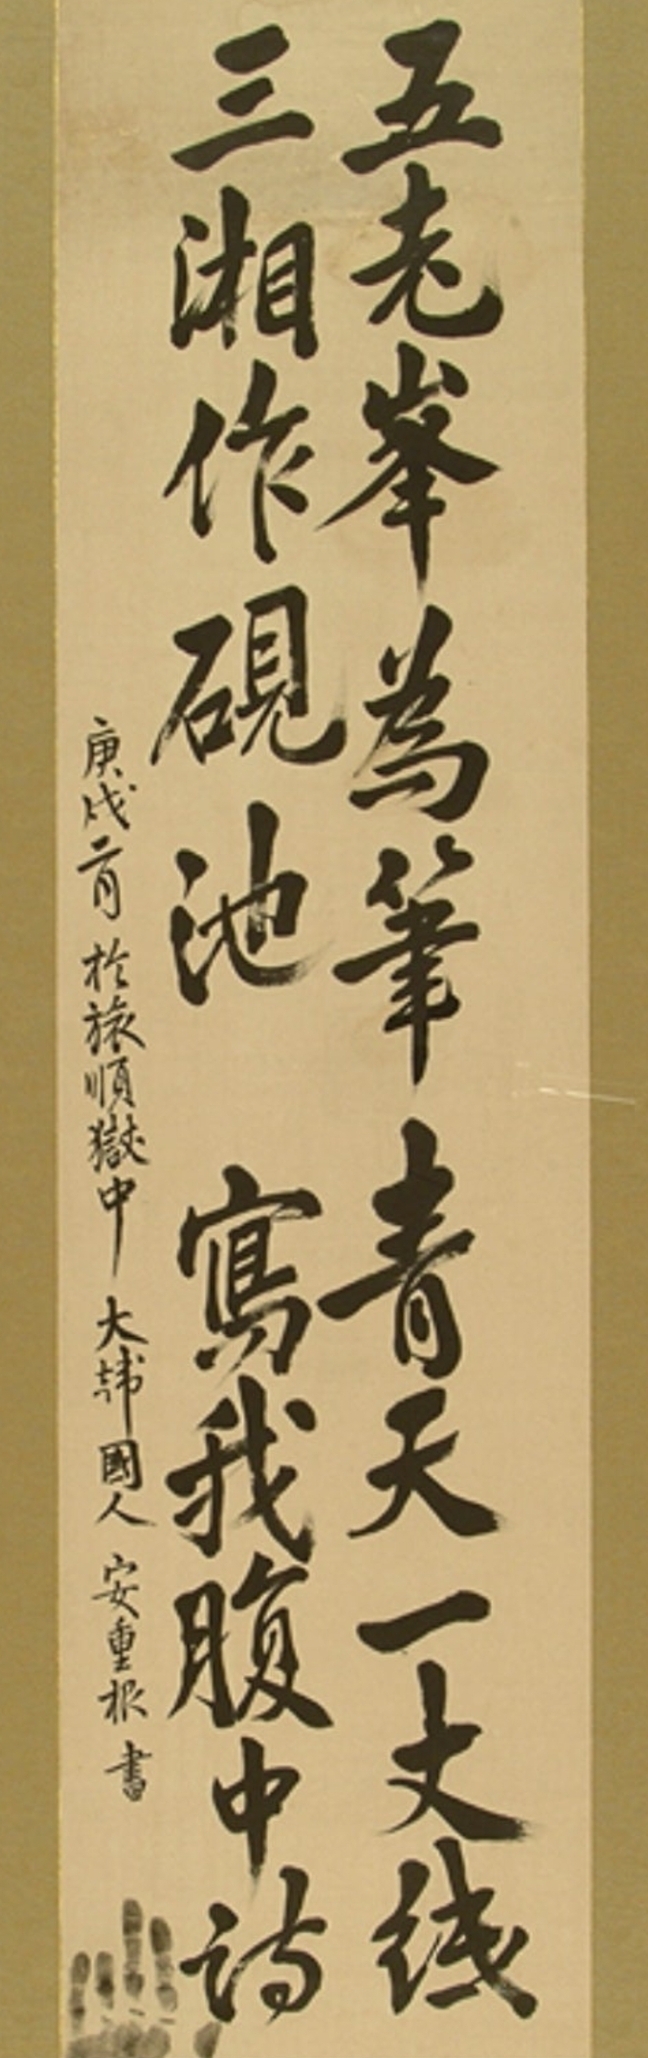 五老峯為筆青天一丈紙
三湘作硯池寫我腹中詩
庚戌二月於旅順獄中大韓國人安重根書